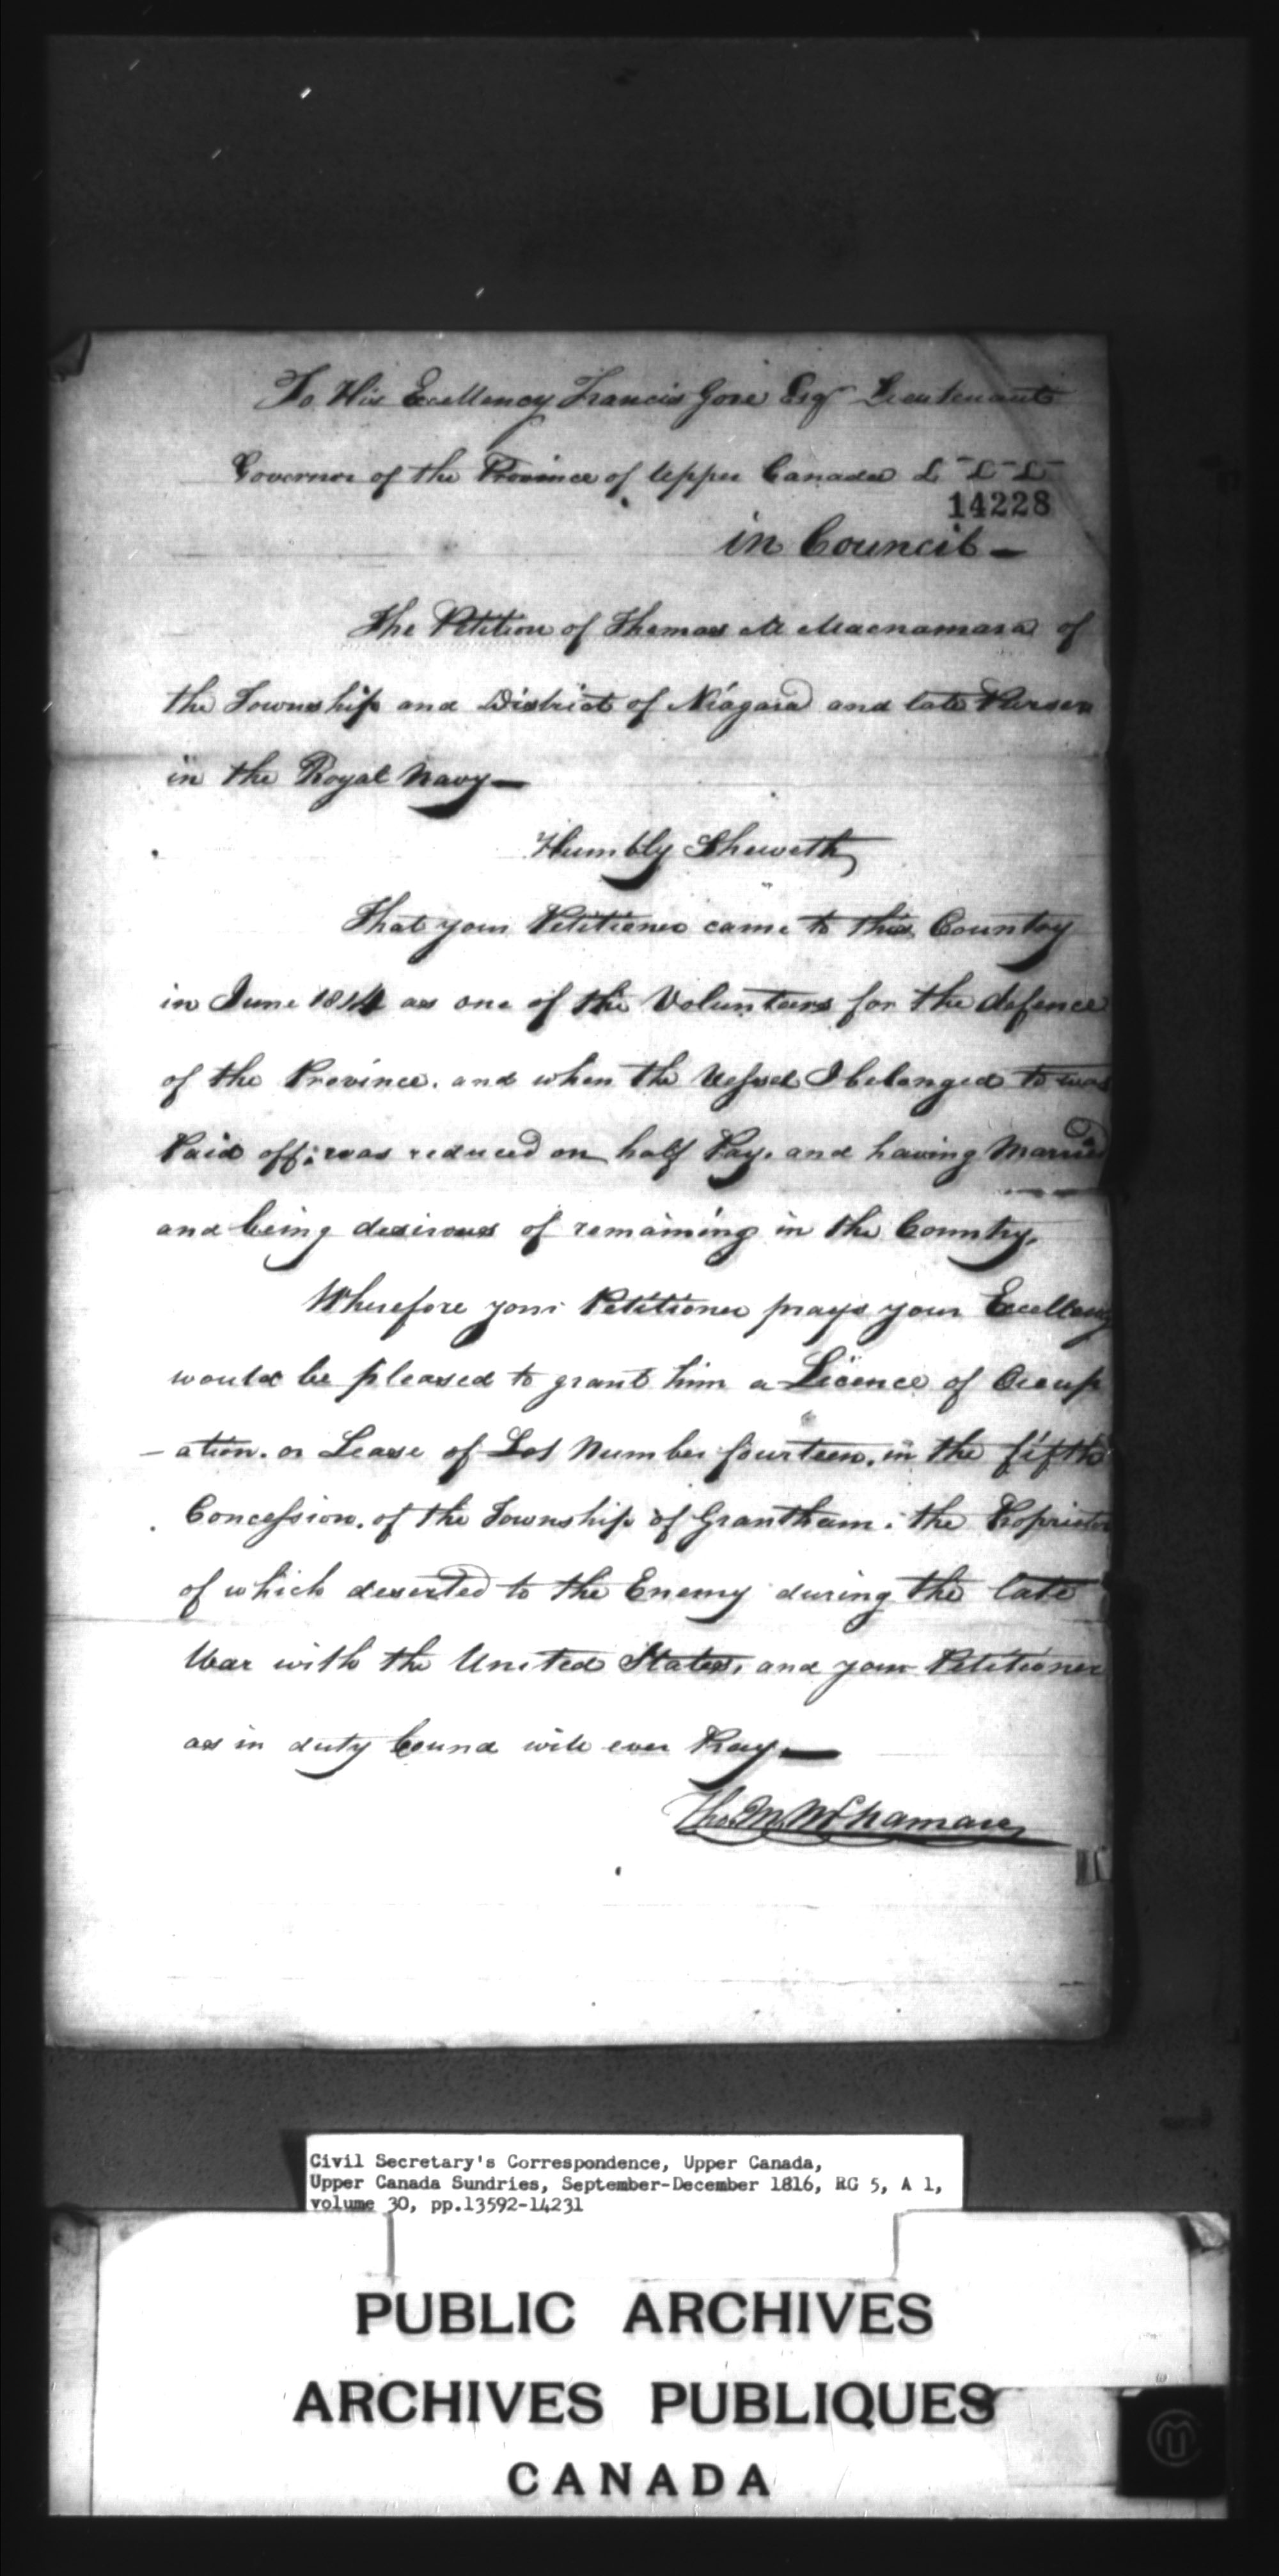 To His Excellency Francis Gore Esqr Lieutenant
Governor of the Province of Upper Canada &c &c &c
14228
in Council —
The Petition of Thomas M Macnamara of
the Township and District of Niagara and late Purser
in the Royal Navy —
Humbly Sheweth
That your Petitioner came to this Country
in June 1814 as one of the Volunteers for the defence
of the Province. and when the Vessel I belonged to was
Paid off: was reduced on half Pay. and having Married
and being desirous of remaining in the Country,
Wherefore your Petitioner prays your Excellency
would be pleased to grant him a Licence of Occup
- ation. or Lease of Lot Number fourteen. in the fifth
Concession. of the Township of Grantham. the Proprietor
of which deserted to the Enemy during the late
War with the United States, and your Petitioner
as in duty bound will ever Pray —
Tho. M. McNamara
Civil Secretary's Correspondence, Upper Canada,
Upper Canada Sundries, September-December 1816, RG 5, A 1,
volume 30, pp.13592-14231
PUBLIC ARCHIVES
ARCHIVES PUBLIQUES
CANADA